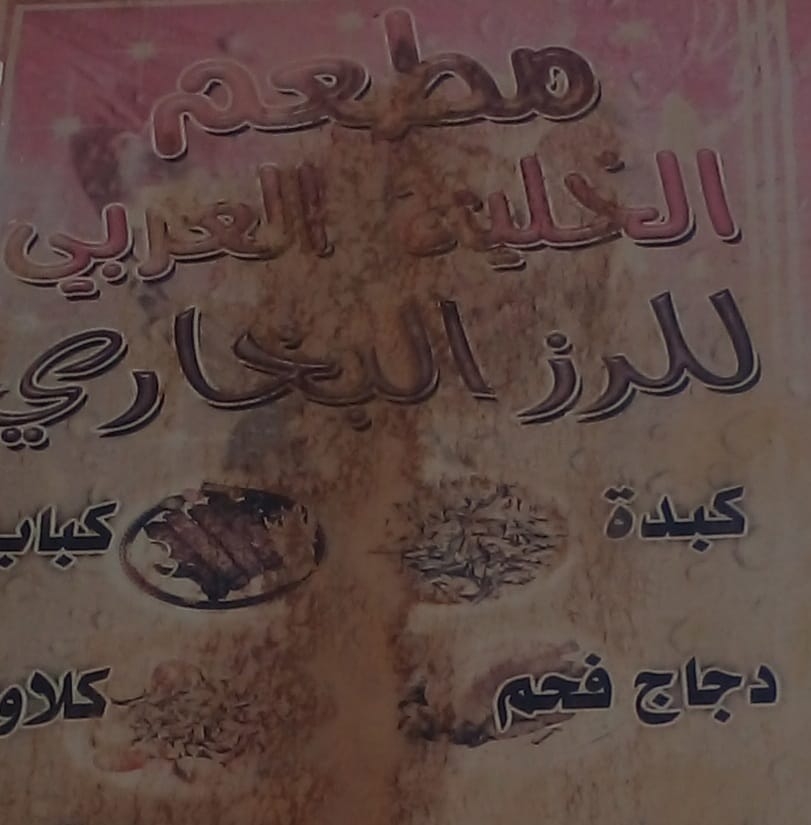 مطعم
الخليج العربي
للرز البخاري
كبدة كباب
دجاج فحم كلاو